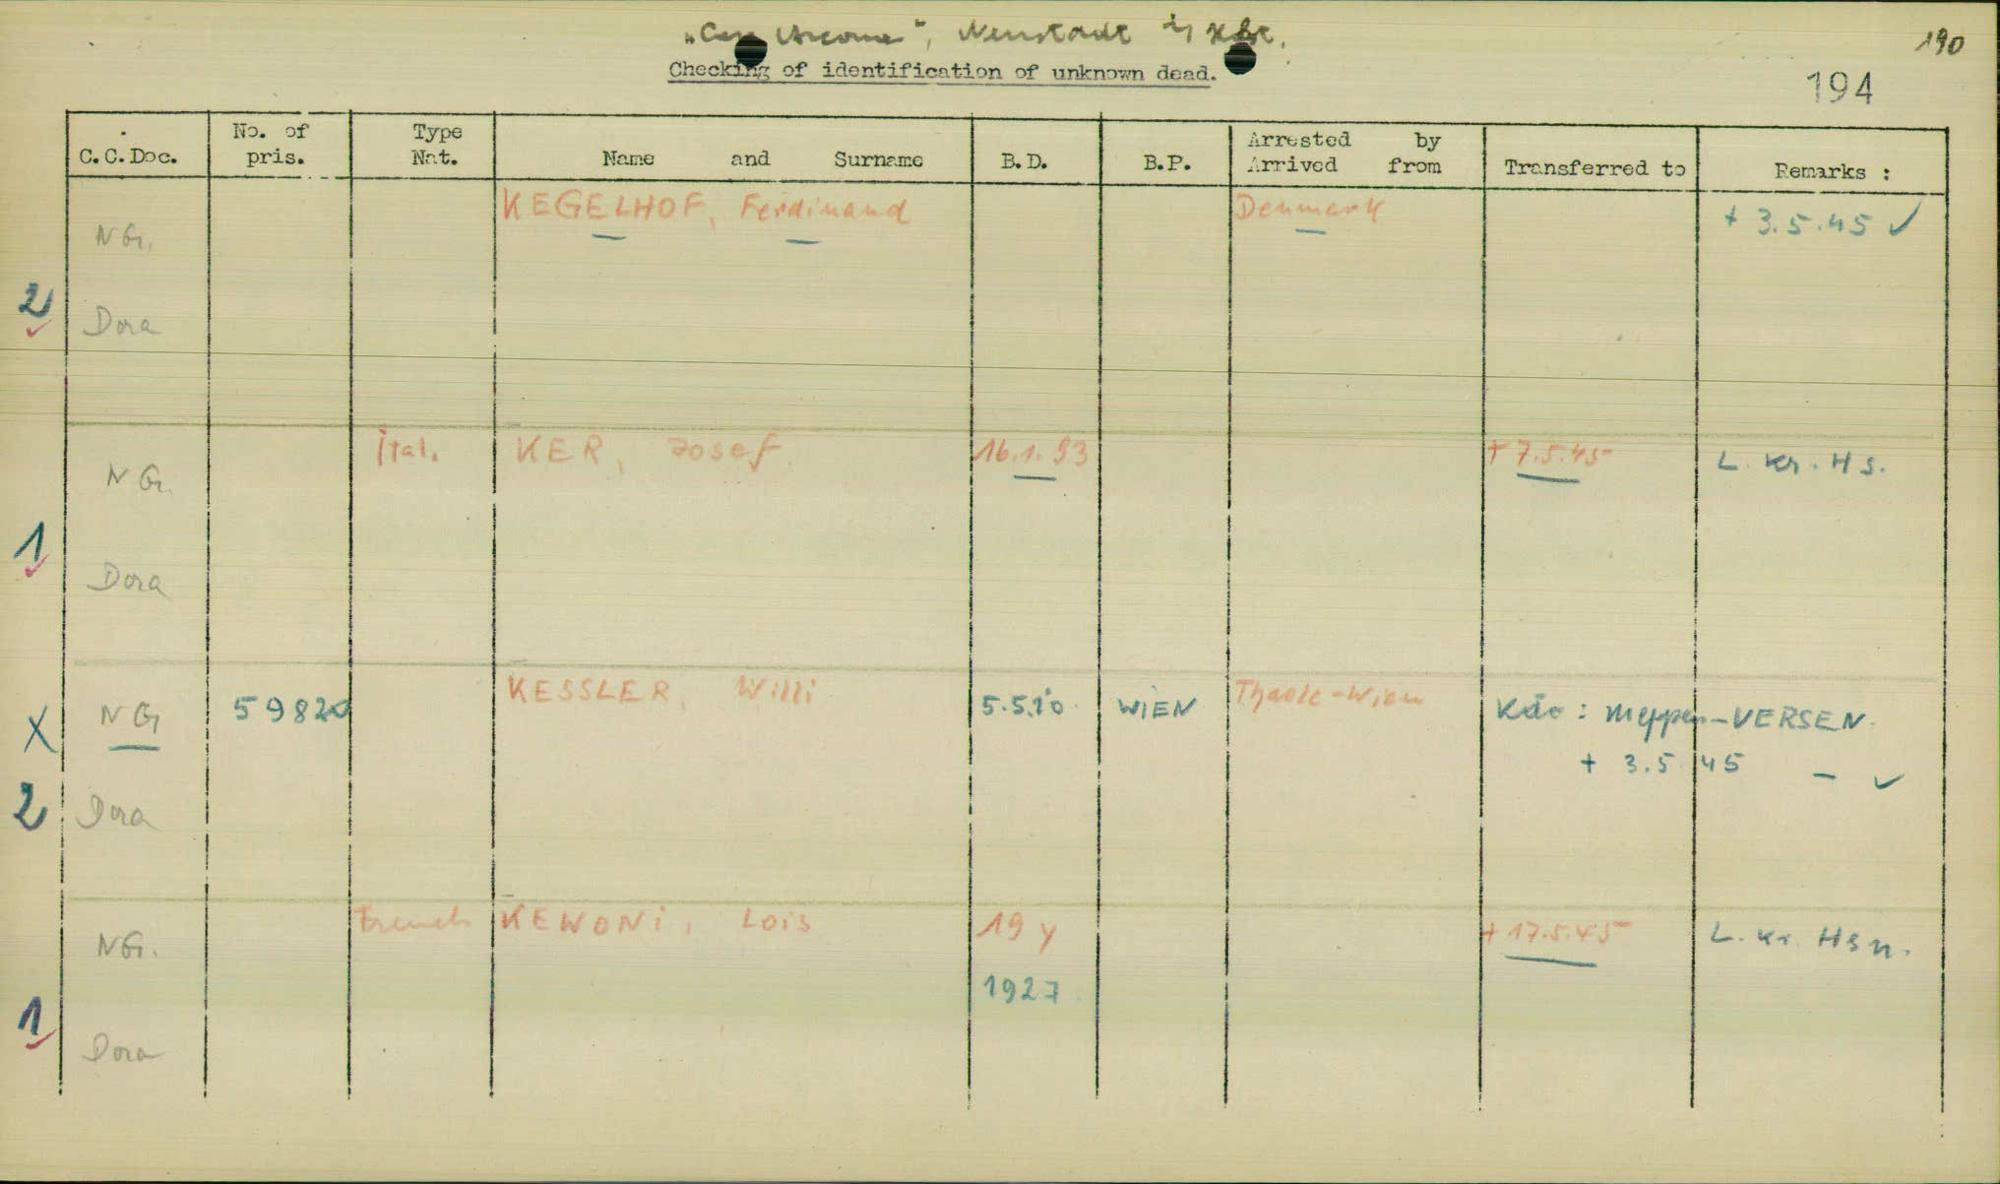 „Cap Arcona“, Neustadt i/ Holst.
190
Checking of identification of unknown dead.
194
C.C.Doc. No. of pris. Type Nat. Name and Surname B.D. B.P. Arrested by Arrived from Transferred to Remarks :
KEGELHOF, Ferdinand Denmark + 3.5.45 ✓
NG.
2 ✓ Dora
Ital. KER, Josef 16.1.93 + 7.5.45 L. Kr. Hs.
NG.
1 ✓
Dora
KESSLER, Willi
X NG 59820 5.5.10 WIEN Kdo : Meppen-VERSEN.
+ 3.5.45 – ✓
2 Dora
French KEWONI, Lois 19 y + 17.5.45 L. Kr. Hsn.
NG.
1927
1 ✓
Dora